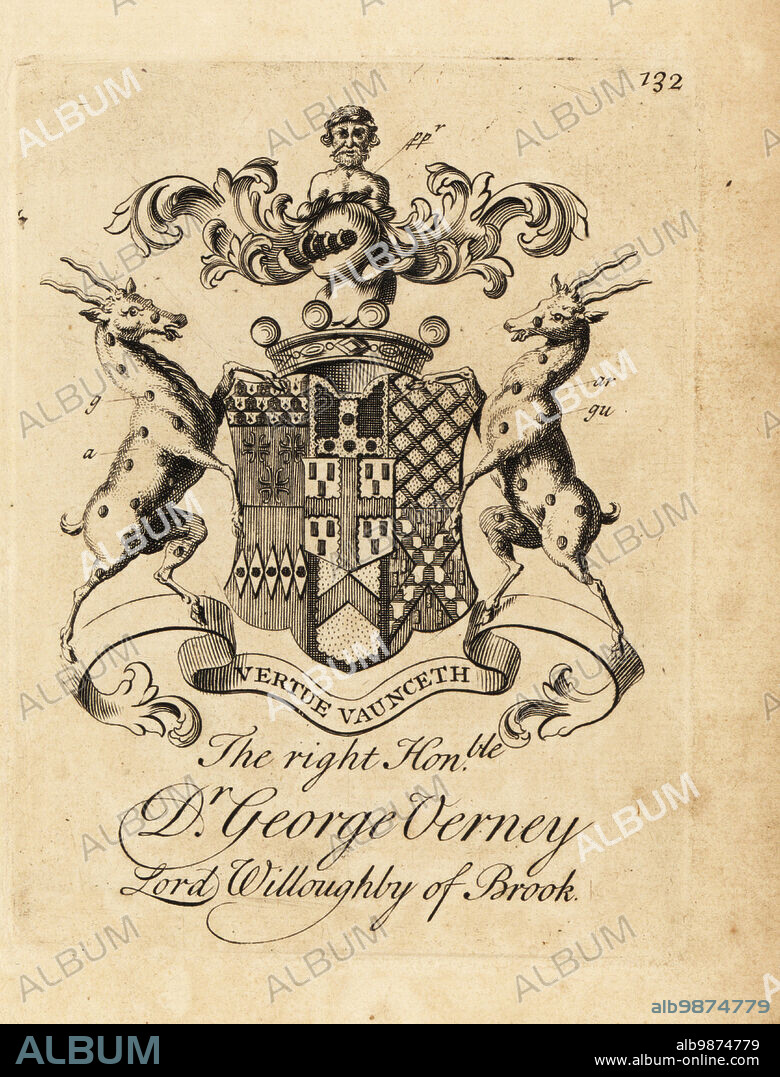 132
ppr
g
a
ar
gu
VERTUE VAUNCETH
The right Hon.ble
Dr. George Verney
Lord Willoughby of Brook.
ALBUM
alb9874779
ALBUM
alb9874779
www.album-online.com